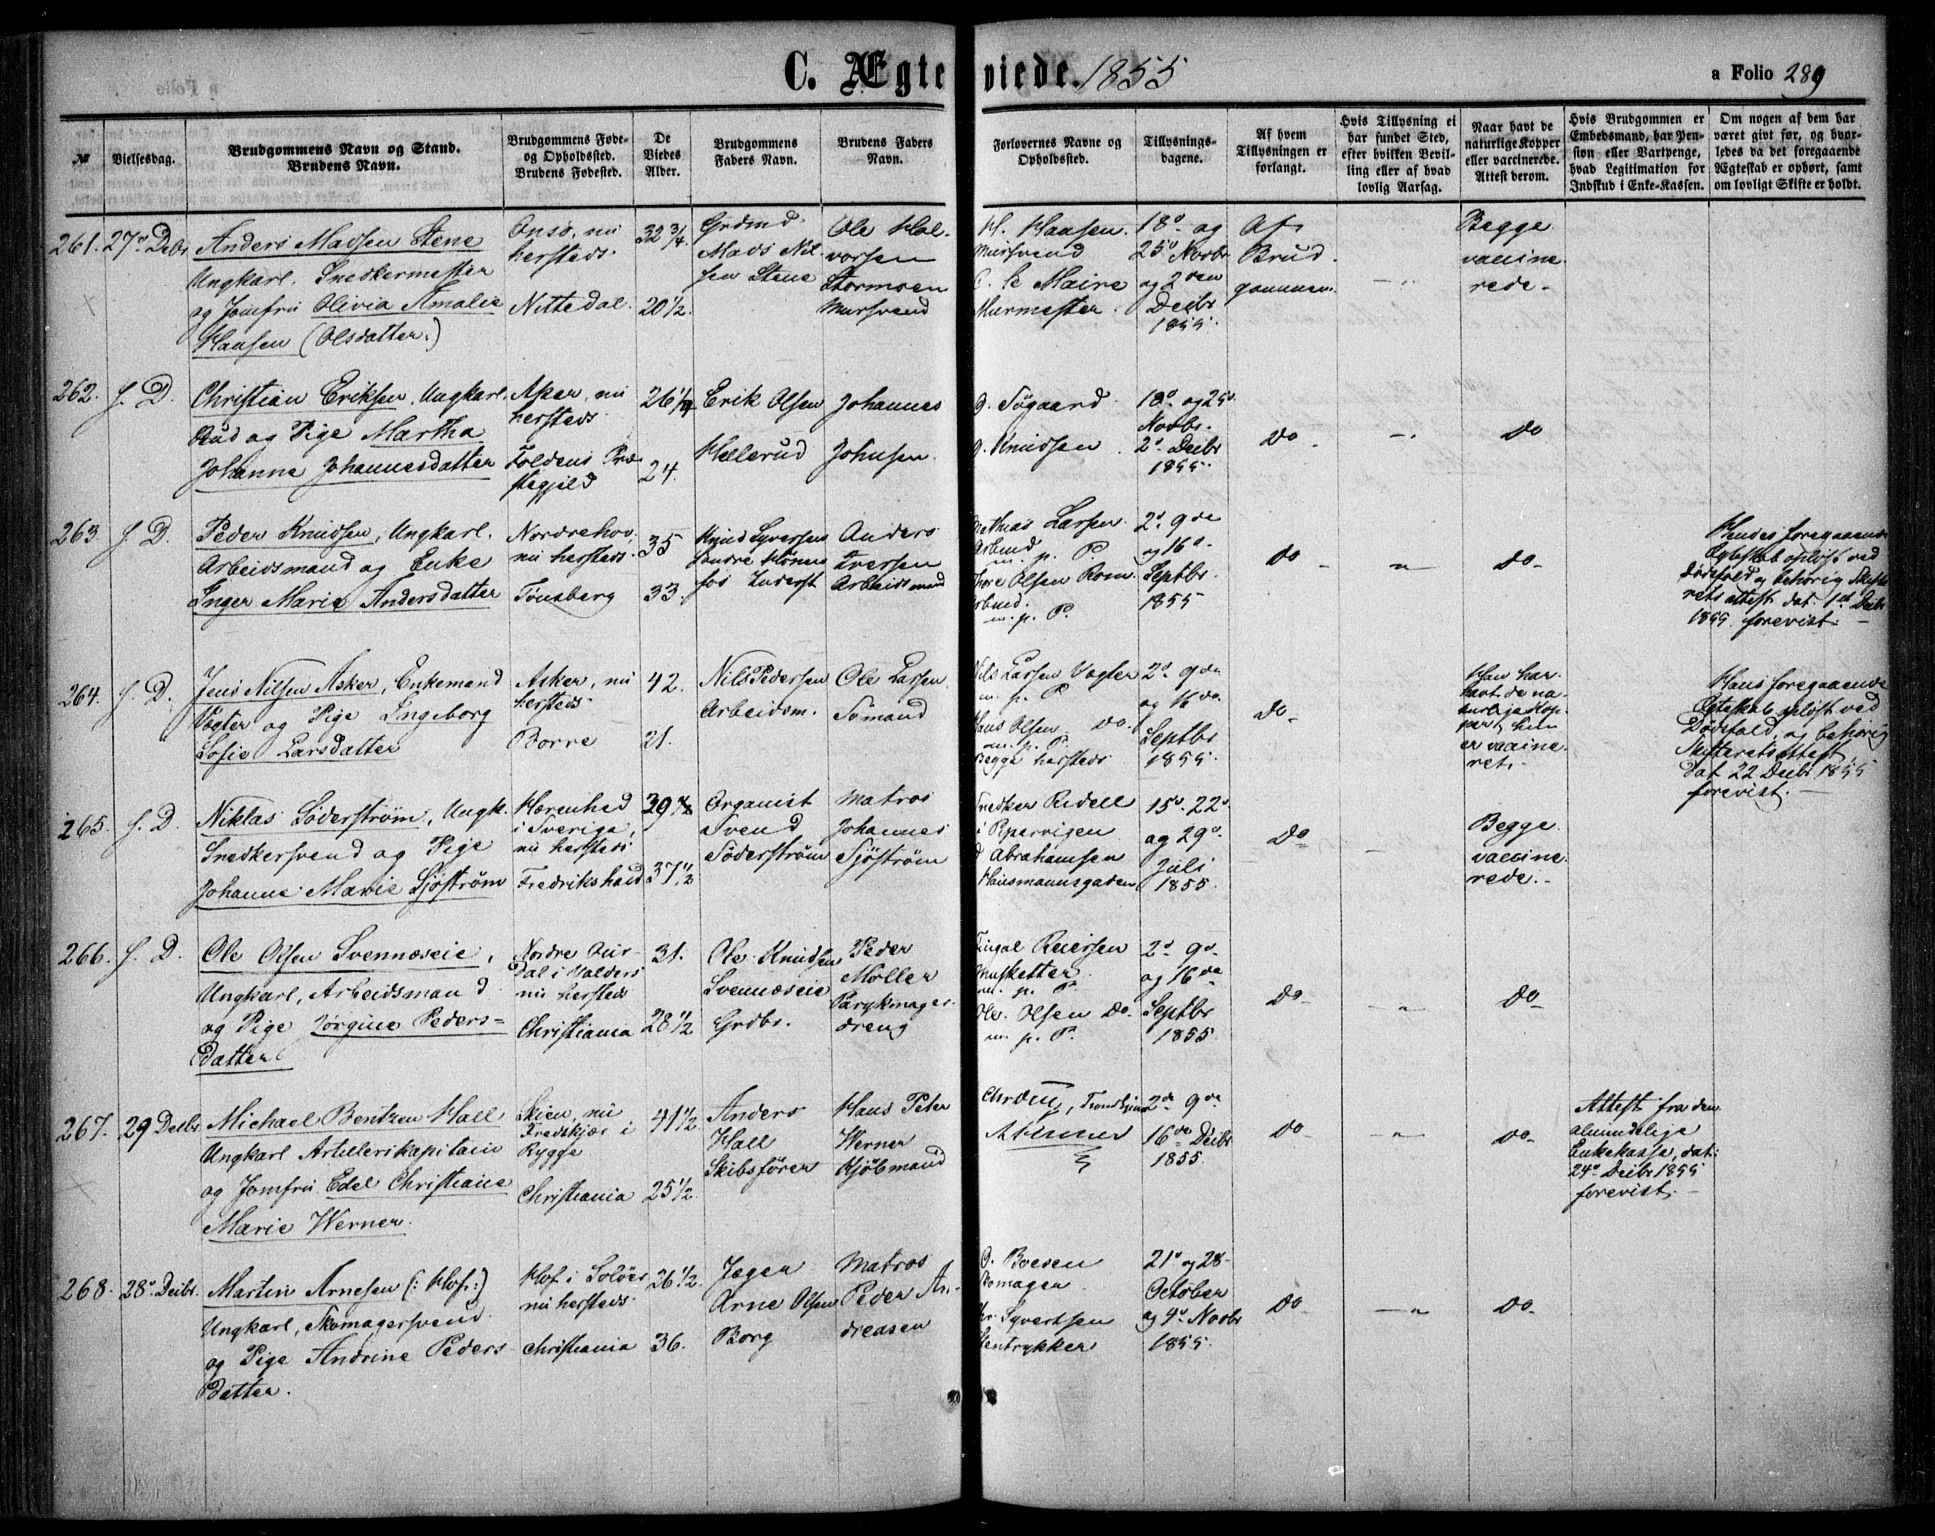 C. Ægteviede. 1855
a Folio 289
№
Vielsesdag.
Brudgommens Navn og Stand.
Brudens Navn.
Brudgommens Føde-
og Opholdssted.
Brudens Fødested.
De
Viedes
Alder.
Brudgommens
Faders Navn.
Brudens Faders
Navn.
Forlovernes Navne og
Opholdssted.
Tillysnings-
dagene.
Af hvem
Tillysningen er
forlangt.
Hvis Tillysning ei
har fundet Sted,
efter hvilken Bevil-
ling eller af hvad
lovlig Aarsag.
Naar havt de
naturlige Kopper
eller vaccinerede.
Attest derom.
Hvis Brudgommen er
Embedsmand, har Pen-
sion eller Vartpenge,
hvad Legitimation for
Indskud i Enke-Kassen.
Om nogen af dem har
været givt før, og hvor-
ledes da det foregaaende
Ægteskab er ophørt, samt
om lovligt Skifte er holdt.
261. 27de Decbr
Anders Madsen Stene
Ungkarl, Snedkermester
og Jomfru Olivia Amalie
Hansen (Olsdatter.)
Onsø, nu
hersteds.
Nittedal.
32 3/4
20 1/2.
Grdmd
Mads Nil-
sen Stene
Ole Hal-
vorsen
Stormoen
Mursvend
H. Hansen.
Mursvend
C. le Maire
Murmester.
18de og
25de Novbr
og 2den
Decbr
1855.
Af
Brud-
gommen.
Begge
vaccine-
rede.
262. S. D.
Christian Eriksen, Ungkarl.
Bud og Pige Martha
Johanne Johannesdatter
Asker, nu
hersteds.
Foldens Præ-
stegjeld
26 1/4
24.
Erik Olsen
Hellerud
Johannes
Johnsen.
Søgaard
Knudsen
18de og 25de
Novbr.
2de Decbr
1855.
Do
Do
263. S. D.
Peder Knudsen, Ungkarl.
Arbeidsmand og Enke
Inger Marie Andersdatter
Nordrehov,
nu hersteds.
Tønsberg
35
33.
Knud Syversen
Søndre Hønen-
fos Inderst
Anders
Iversen
Arbeidsmand
Mathias Larsen
Arbmd.
m. p. P.
Thore Olsen Rom.
Arbmd.
m. p. P.
2de 9de
og 16de
Septbr.
1855
Do
Do
Hendes foregaaende
Ægteskab opløst ved
Dødsfald og behørig Skifte-
rets attest dat. 1st Decbr
1855 forevist.
264. S. D.
Jens Nilsen Asker, Enkemand
Vægter og Pige Ingeborg
Sofie Larsdatter
Asker, nu
hersteds.
Borre
42.
21.
Nils Pedersen
Arbeidsm.
Ole Larsen
Sømand
Nils Larsen Vægter
m. p. P.
Hans Olsen Do.
m. p. P.
Begge hersteds
2de 9de
og 16de
Septbr
1855.
Do
Han har
havt de na-
turlige Kop-
per, hun
er vaccine-
ret.
Hans foregaaende
Ægteskab opløst ved
Dødsfald, og behørig
Skifteretsattest
dat 22 Decbr 1855
forevist.
265. S. D.
Niklas Søderstrøm, Ungk.
Snedkersvend og Pige
Johanne Marie Sjøstrøm
Hærenhed
i Sverige,
nu hersteds
Fredrikshald
39 1/2
37 1/2
Organist
Svend
Søderstrøm
Matros
Johannes
Sjøstrøm
Snedker Ridell
i Pipervigen
Abrahamsen
Hausmannsgaden
15de 22de
og 29de
Juli
1855.
Do
Begge
vaccine-
rede.
266. S. D.
Ole Olsen Svennæseie,
Ungkarl, Arbeidsmand
og Pige Jørgine Peders-
datter
Nordre Aur-
dal i Valders
nu hersteds
Christiania
31.
28 1/2
Ole Knudsen
Svennæseie
Grdbr.
Peder
Møller
Parykmager-
dreng
Fingal Reiersen
Musketter
m. p. P.
Ole Olsen Do
m. p. P.
2de 9de
og 16de
Septbr
1855.
Do
Do
267. 29 Decbr
Michael Bentzen Hall
Ungkarl Artillerikapitain
og Jomfru Edel Christiane
Marie Werner.
Skien, nu
Fredskjær i
Rygge
Christiania
41 1/2
25 1/2.
Anders
Hall
Skibsfører
Hans Peter
Werner
Kjøbmand
2de 9de
16de Decbr
1855.
Do
Do
Attest fra den
almindelige
Enkekasse, dat:
24de Decbr 1855
forevist.
268. 28de Decbr.
Martin Arnesen (: Hof:)
Ungkarl, Skomagersvend
og Pige Andrine Peders-
datter.
Hof i Soløer
nu hersteds.
Christiania
26 1/2.
36.
Jæger
Arne Olsen
Borg
Matros
Peder An-
dreasen
O. Boesen
Skomager
Chr. Syvertsen
Stentrykker
21de og 28
October
og 4de Novbr
1855.
Do
Do